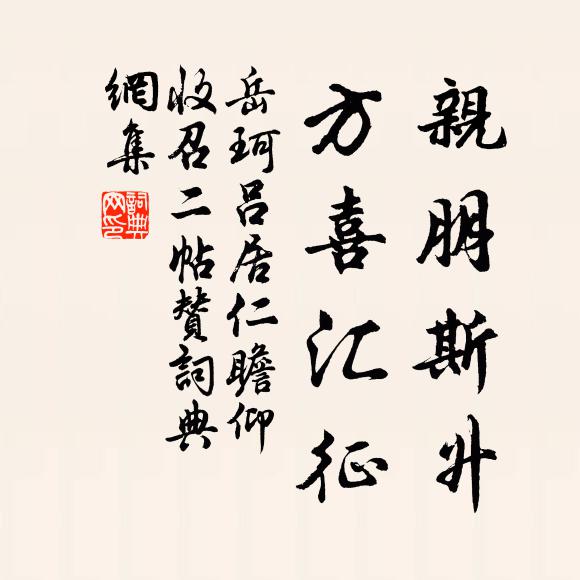 親朋斯升
方喜汇征
岳珂吕居仁瞻仰
收召二帖贊詞典
網集
詞典
网印